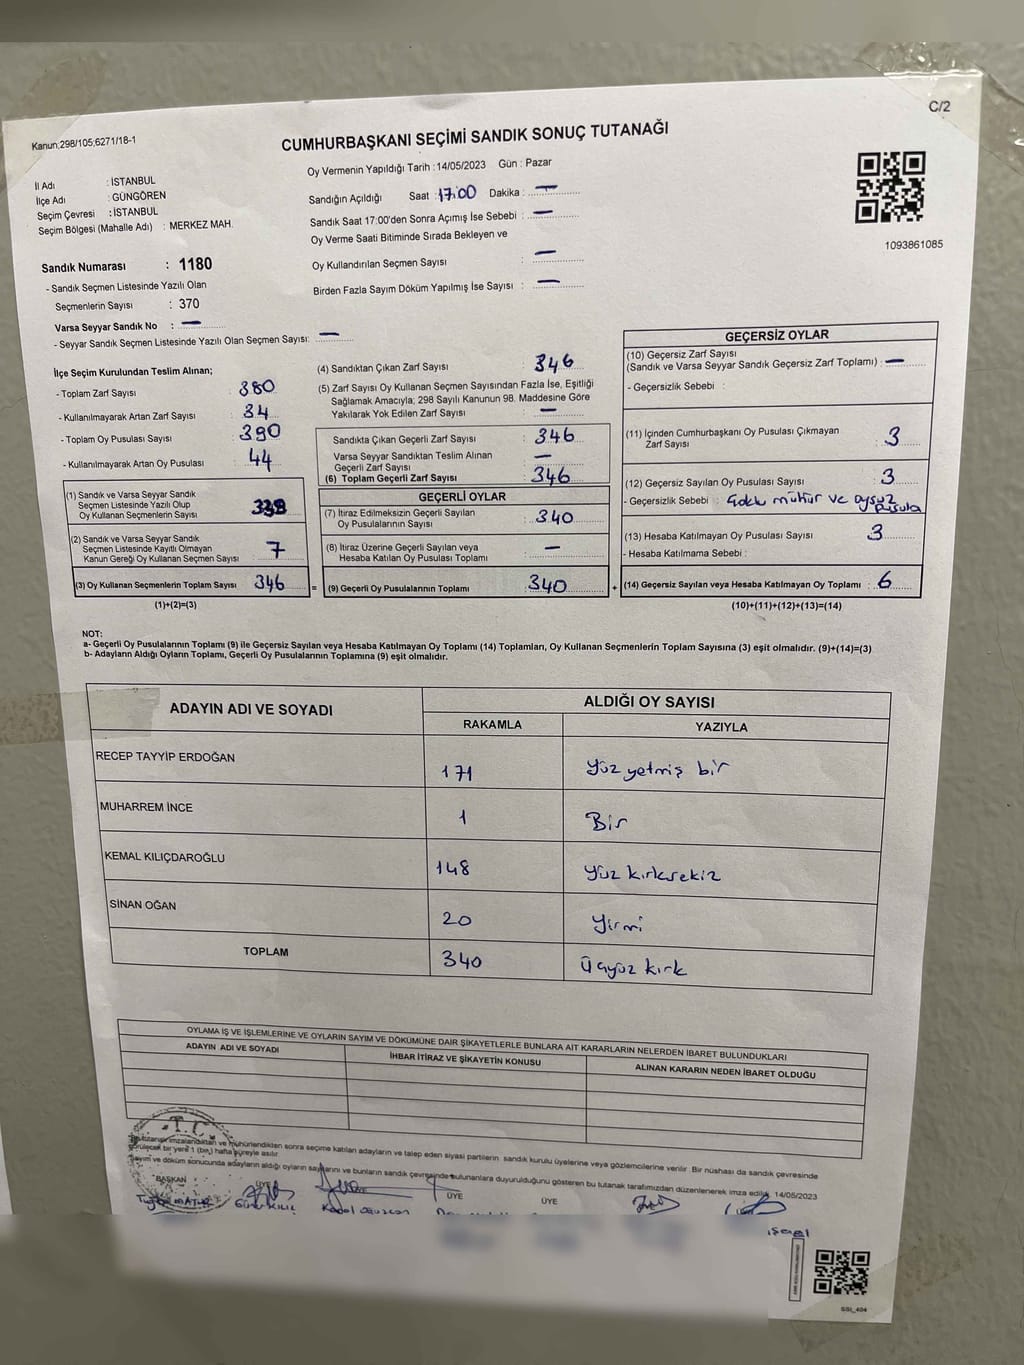 C/2
Kanun;298/105;6271/18-1
CUMHURBAŞKANI SEÇİMİ SANDIK SONUÇ TUTANAĞI
Oy Vermenin Yapıldığı Tarih : 14/05/2023 Gün : Pazar
İl Adı : İSTANBUL
İlçe Adı : GÜNGÖREN
Seçim Çevresi : İSTANBUL
Seçim Bölgesi (Mahalle Adı) : MERKEZ MAH.
Sandığın Açıldığı Saat : 17:00 Dakika : —
Sandık Saat 17:00'den Sonra Açımış İse Sebebi : —
Oy Verme Saati Bitiminde Sırada Bekleyen ve
Oy Kullandırılan Seçmen Sayısı : —
Birden Fazla Sayım Döküm Yapılmış İse Sayısı : —
1093861085
Sandık Numarası : 1180
- Sandık Seçmen Listesinde Yazılı Olan
Seçmenlerin Sayısı : 370
Varsa Seyyar Sandık No : —
- Seyyar Sandık Seçmen Listesinde Yazılı Olan Seçmen Sayısı: —
İlçe Seçim Kurulundan Teslim Alınan;
- Toplam Zarf Sayısı : 380
- Kullanılmayarak Artan Zarf Sayısı : 34
- Toplam Oy Pusulası Sayısı : 390
- Kullanılmayarak Artan Oy Pusulası : 44
(1) Sandık ve Varsa Seyyar Sandık
Seçmen Listesinde Yazılı Olup
Oy Kullanan Seçmenlerin Sayısı :
(2) Sandık ve Varsa Seyyar Sandık
Seçmen Listesinde Kayıtlı Olmayan
Kanun Gereği Oy Kullanan Seçmen Sayısı : 7
(3) Oy Kullanan Seçmenlerin Toplam Sayısı : 346 =
(1)+(2)=(3)
(4) Sandıktan Çıkan Zarf Sayısı : 346
(5) Zarf Sayısı Oy Kullanan Seçmen Sayısından Fazla İse, Eşitliği
Sağlamak Amacıyla; 298 Sayılı Kanunun 98. Maddesine Göre
Yakılarak Yok Edilen Zarf Sayısı : —
Sandıkta Çıkan Geçerli Zarf Sayısı : 346
Varsa Seyyar Sandıktan Teslim Alınan
Geçerli Zarf Sayısı : —
(6) Toplam Geçerli Zarf Sayısı : 346
GEÇERLİ OYLAR
(7) İtiraz Edilmeksizin Geçerli Sayılan
Oy Pusulalarının Sayısı : 340
(8) İtiraz Üzerine Geçerli Sayılan veya
Hesaba Katılan Oy Pusulası Toplamı : —
(9) Geçerli Oy Pusulalarının Toplamı : 340 +
GEÇERSİZ OYLAR
(10) Geçersiz Zarf Sayısı
(Sandık ve Varsa Seyyar Sandık Geçersiz Zarf Toplamı) : —
- Geçersizlik Sebebi :
(11) İçinden Cumhurbaşkanı Oy Pusulası Çıkmayan
Zarf Sayısı : 3
(12) Geçersiz Sayılan Oy Pusulası Sayısı : 3
- Geçersizlik Sebebi : Çoklu mühür ve oysuz
Pusula
(13) Hesaba Katılmayan Oy Pusulası Sayısı : 3
- Hesaba Katılmama Sebebi :
(14) Geçersiz Sayılan veya Hesaba Katılmayan Oy Toplamı : 6
(10)+(11)+(12)+(13)=(14)
NOT:
a- Geçerli Oy Pusulalarının Toplamı (9) ile Geçersiz Sayılan veya Hesaba Katılmayan Oy Toplamı (14) Toplamları, Oy Kullanan Seçmenlerin Toplam Sayısına (3) eşit olmalıdır. (9)+(14)=(3)
b- Adayların Aldığı Oyların Toplamı, Geçerli Oy Pusulalarının Toplamına (9) eşit olmalıdır.
ADAYIN ADI VE SOYADI ALDIĞI OY SAYISI
RAKAMLA YAZIYLA
RECEP TAYYİP ERDOĞAN 171 Yüz yetmiş bir
MUHARREM İNCE 1 Bir
KEMAL KILIÇDAROĞLU 148 Yüz kırksekiz
SİNAN OĞAN 20 Yirmi
TOPLAM 340 Üçyüz kırk
OYLAMA İŞ VE İŞLEMLERİNE VE OYLARIN SAYIM VE DÖKÜMÜNE DAİR ŞİKAYETLERLE BUNLARA AİT KARARLARIN NELERDEN İBARET BULUNDUKLARI
ADAYIN ADI VE SOYADI İHBAR İTİRAZ VE ŞİKAYETİN KONUSU ALINAN KARARIN NEDEN İBARET OLDUĞU
T.C.
tutanak imzalandıktan ve mühürlendikten sonra seçime katılan adayların ve talep eden siyasi partilerin sandık kurulu üyelerine veya gözlemcilerine verilir. Bir nüshası da sandık çevresinde
görülecek bir yere 1 (bir) hafta süreyle asılır.
Sayım ve döküm sonucunda adayların aldığı oyların sayılarını ve bunların sandık çevresinde bulunanlara duyurulduğunu gösteren bu tutanak tarafımızdan düzenlenerek imza edildi. 14/05/2023
BAŞKAN ÜYE ÜYE ÜYE
SSI_404